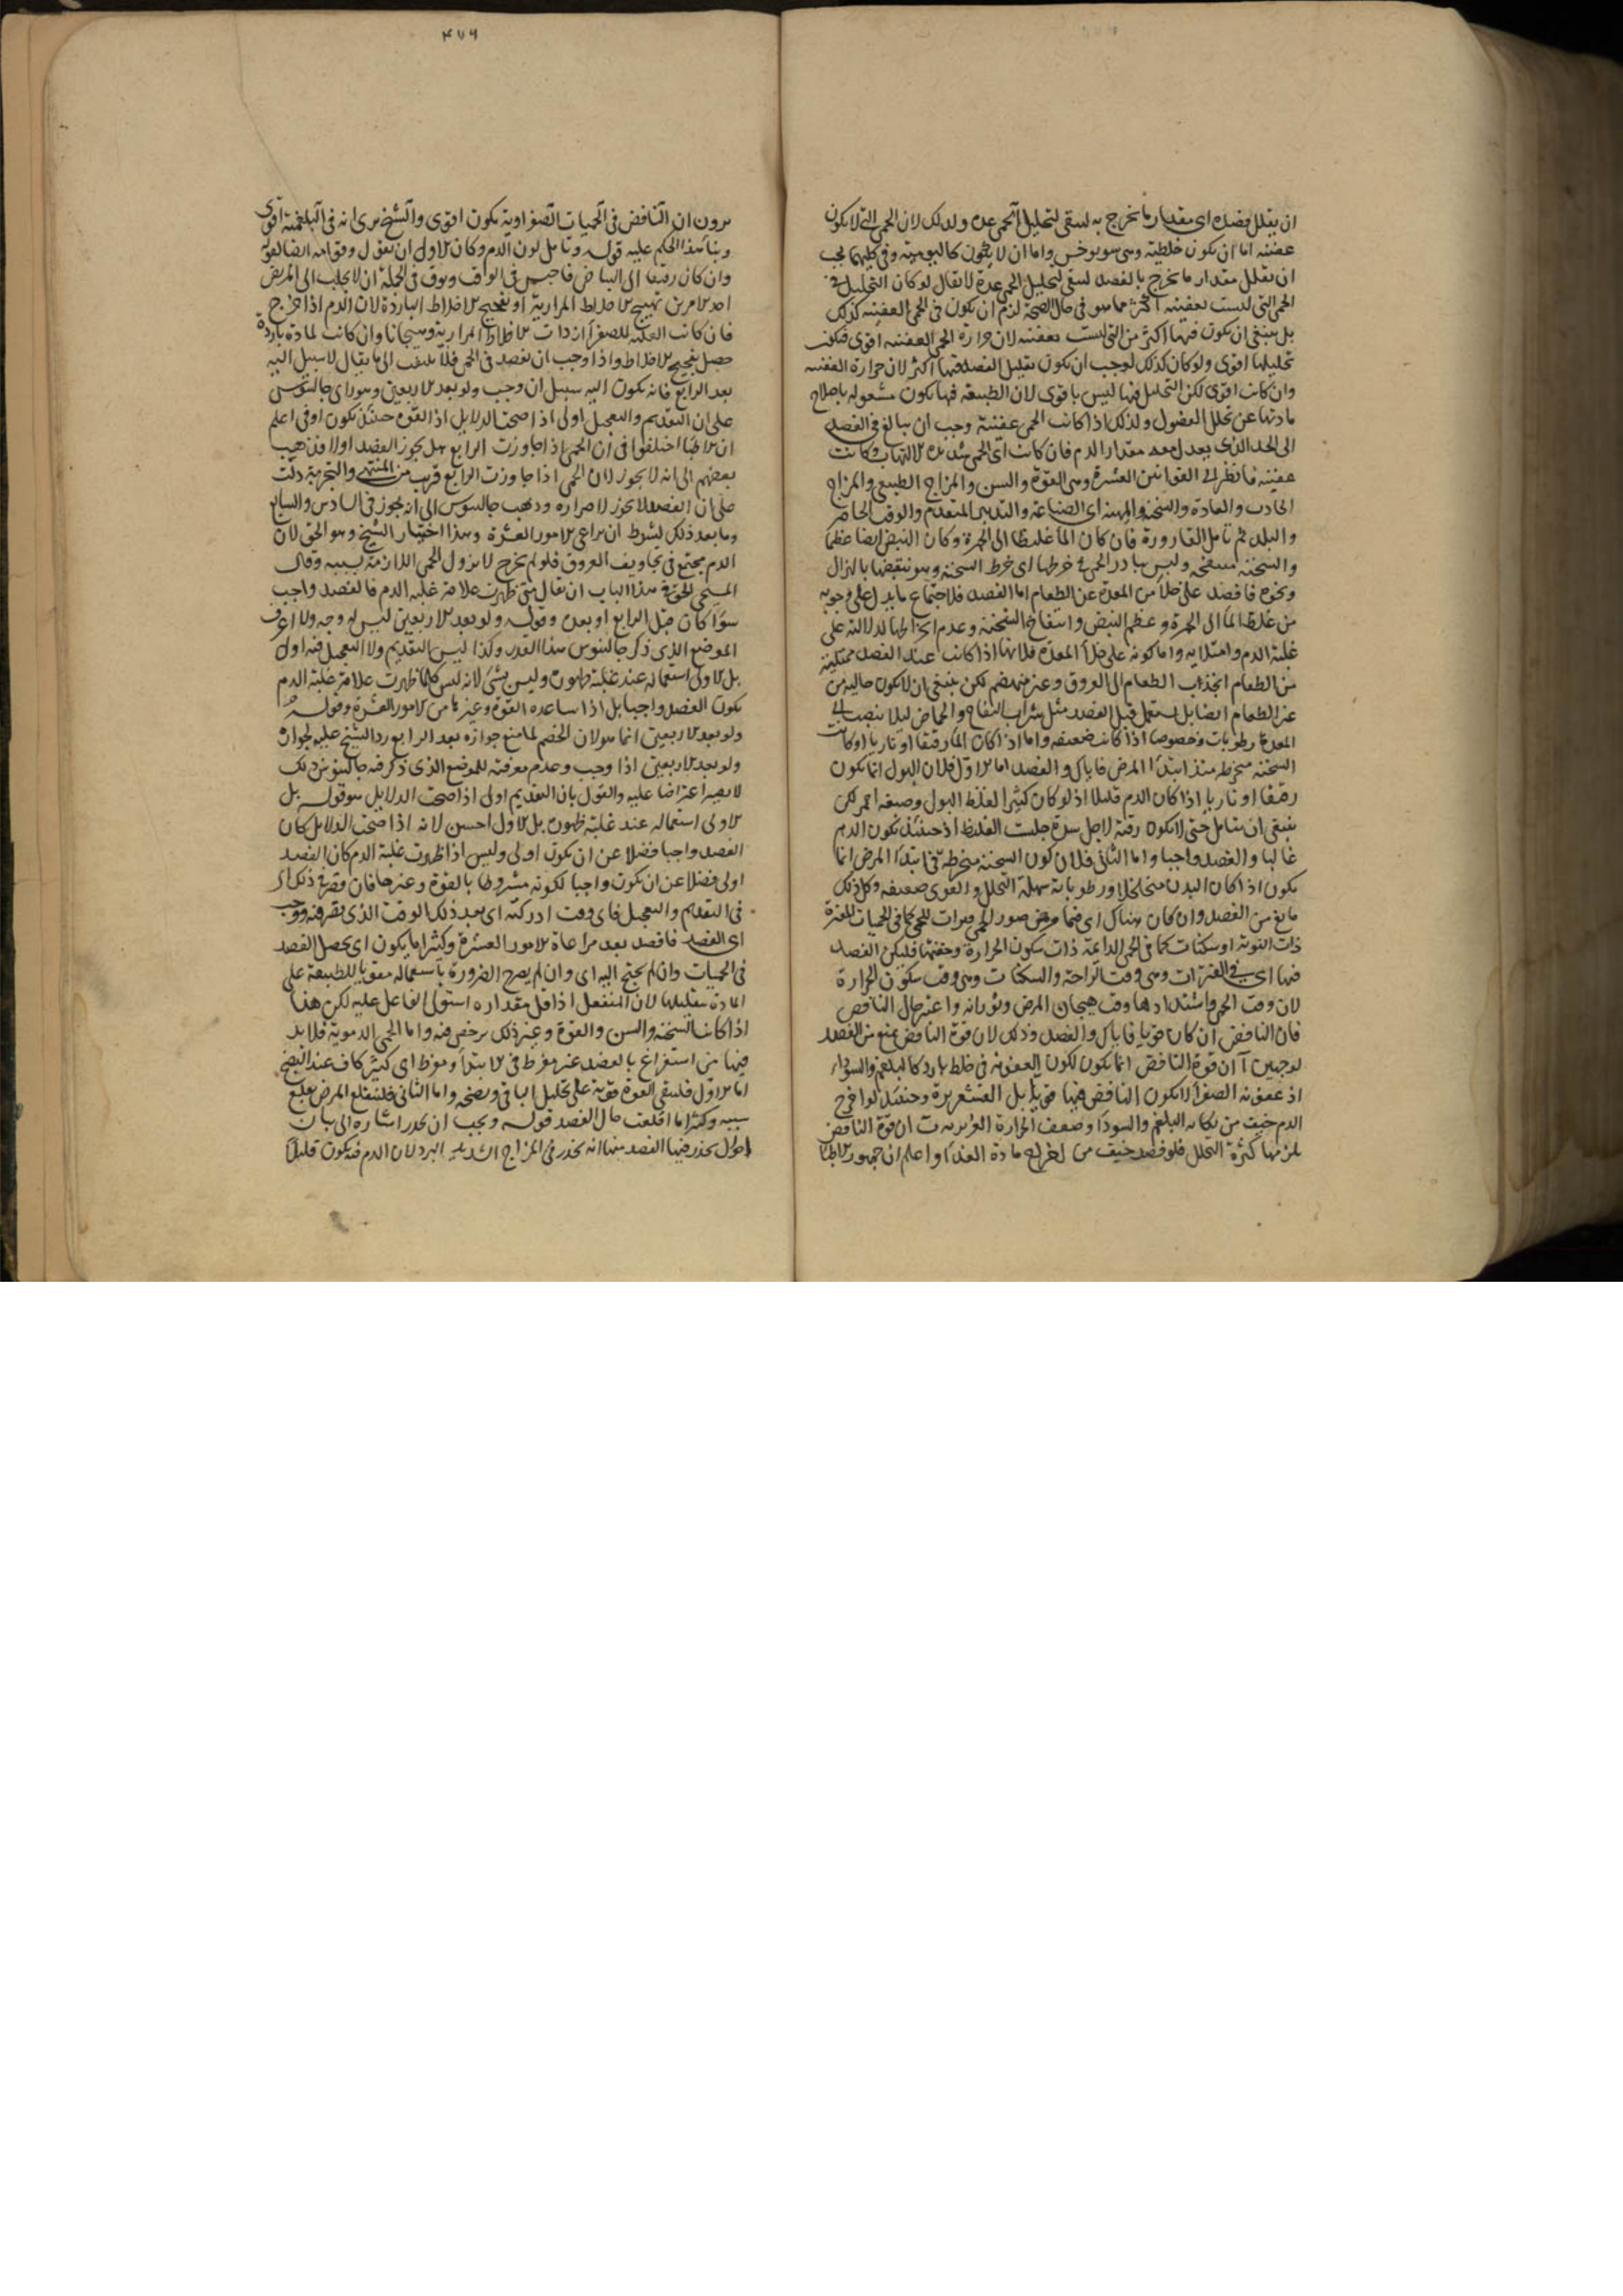 ان يقلل فصده اى مقدار ما يخرج به لسقى لتحليل الحمى عدة ولذلك لان الحمى التى لا يكون
عفنية اما ان يكون خلطية وهى سونوخس واما ان لا يكون كاليومية وفى كليهما يجب
ان يقلل مقدار ما يخرج بالفصد لسقى لتحليل الحمى عدة لا يقال لو كان التحليل فى
الحمى التى ليست بعفنية اكثر مما هو فى حال الصحة لزم ان يكون فى الحمى العفنية كذلك
بل ينبغى ان يكون فيها اكثر من التى ليست بعفنية لان حرارة الحمى العفنية اقوى فيكون
تحليلها اقوى ولو كان كذلك لوجب ان يكون تقليل الفصد فيها اكثر لان حرارة العفنية
وان كانت اقوى لكن التحليل فيها ليس باقوى لان الطبيعة فيها يكون مشغولة باصلاح
مادتها عن تحلل الفضول ولذلك اذا كانت الحمى عفنية وجب ان يبالغ فى الفصد
الى الحد الذى يعدل معه مقدار الدم فان كانت اى الحمى شديدة الالتهاب وكانت
عفنية فانظر الى القوانين العشرة وهى القوة والسن والمزاج الطبيعى والمزاج
الحادث والعادة والسحنة والمهنة اى الصناعة والتدبير المتقدم والوقت الحاضر
والبلد ثم تامل القارورة فان كان الماء غليظا الى الحمرة وكان النبض ايضا عظيما
والسحنة منتفخة وليس يبادر الحمى فى خرطها اى خرط السحنة وهو تنقيصها بالهزال
ونحوه فافصد على خلاء من المعدة عن الطعام اما الفصد فلاجتماع ما يدل على وجوبه
من غلظ الماء الى الحمرة وعظم النبض وانتفاخ السحنة وعدم انخراطها لدلالته على
غلبة الدم وامتلايه واما كونه على خلاء المعدة فلانها اذا كانت عند الفصد ممتلية
من الطعام انجذب الطعام الى العروق وغير منهضم لكن ينبغى ان لا يكون خالية من
غير الطعام ايضا بل يستعمل قبل الفصد مثل شراب التفاح والحماض ليلا ينصب الى
المعدة رطوبات وخصوصا اذا كانت ضعيفة واما اذا كان الماء رقيقا او ناريا او كانت
السحنة منخرطة منذ ابتداء المرض فاياك والفصد اما الاول فلان البول انما يكون
رقيقا او ناريا اذا كان الدم قليلا اذ لو كان كثيرا لغلظ البول وصبغه احمر لكن
ينبغى ان يتامل حتى لا يكون رقته لاجل سدة حبست الغليظ اذ حينئذ يكون الدم
غالبا والفصد واجبا واما الثانى فلان كون السحنة منخرطة فى ابتداء المرض انما
يكون اذا كان البدن متخلخلا ورطوباته سهلة التحلل والقوى ضعيفة وكل ذلك
مانع من الفصد وان كان هناك اى فيما فرض صور الحمى فترات للحمى كما فى الحميات المفترة
ذات النوبة او سكنات كما فى الحمى الدايمة ذات سكون الحرارة وخفتها فليكن الفصد
فيها اى فى الفترات وهى وقت الراحة والسكنات وهى وقت سكون الحرارة
لان وقت الحمى واشتدادها وقت هيجان المرض وثورانه واعتبر حال النافض
فان النافض ان كان قويا فاياك والفصد وذلك لان قوة النافض يمنع من الفصد
لوجهين آ ان قوة النافض انما يكون لكون العفونة فى خلط بارد كالبلغم والسوداء
اذ عفونة الصفراء لا يكون النافض فيها قويا بل القشعريرة وحينئذ لو اخرج
الدم خيف من نكاية البلغم والسوداء وضعف الحرارة الغريزية ب ان قوة النافض
يلزمها كثرة التحلل فلو فصد خيف من اخراج مادة الغذاء واعلم ان جمهور الاطباء
يرون ان النافض فى الحميات الصفراوية يكون اقوى والشيخ يرى انه فى البلغمية اقوى
وبناء هذا الحكم عليه قوله وتامل لون الدم وكان الاول ان يقول وقوامه ايضا لقوله
وان كان رقيقا الى البياض فاحبس فى الوقت وتوق فى الجملة ان لا يجلب الى المريض
احد الامرين تهييج الاخلاط المرارية او تفجيج الاخلاط الباردة لان الدم اذا خرج
فان كانت الغلبة للصفراء ازدادت الاخلاط المرارية وهيجانا وان كانت لمادة باردة
حصل تفجيج الاخلاط واذا وجب ان يفصد فى الحمى فلا يلتفت الى ما يقال لا سبيل اليه
بعد الرابع فانه يكون اليه سبيل ان وجب ولو بعد الاربعين وهو راى جالينوس
على ان التقديم والتعجيل اولى اذا صحت الدلايل اذ القوة حينئذ يكون اوفى اعلم
ان الاطباء اختلفوا فى ان الحمى اذا جاوزت الرابع هل يجوز الفصد او لا فذهب
بعضهم الى انه لا يجوز لان الحمى اذا جاوزت الرابع قربت من المنتهى والتجربة دلت
على ان الفصد لا يجوز لاضراره وذهب جالينوس الى انه يجوز فى السادس والسابع
وما بعد ذلك بشرط ان يراعى الامور العشرة وهذا اختيار الشيخ وهو الحق لان
الدم مجتمع فى تجاويف العروق فلو لم يخرج لا يزول الحمى اللازمة بسببه وقال
المسيحى الحق فى هذا الباب ان يقال متى ظهرت علامة غلبة الدم فالفصد واجب
سواء كان قبل الرابع او بعده وقوله ولو بعد الاربعين ليس له وجه ولا اعرف
الموضع الذى ذكر جالينوس هذا القدر وكذا ليس التقديم ولا التعجيل فيه اولى
بل الاولى استعماله عند غلبة ظهوره وليس بشئ لانه ليس كلما ظهرت علامة غلبة الدم
يكون الفصد واجبا بل اذا ساعده القوة وغيرها من الامور العشرة وقوله
ولو بعد الاربعين انما هو لان الخصم لما منع جوازه بعد الرابع رد الشيخ عليه لجوازه
ولو بعد الاربعين اذا وجب وعدم معرفته للموضع الذى ذكر فيه جالينوس ذلك
لا يصير اعتراضا عليه والقول بان التقديم اولى اذا صحت الدلايل هو قوله بل
الاولى استعماله عند غلبة ظهوره بل الاول احسن لانه اذا صحت الدلايل كان
الفصد واجبا فضلا عن ان يكون اولى وليس اذا ظهرت غلبة الدم كان الفصد
اولى فضلا عن ان يكون واجبا لكونه مشروطا بالقوة وغيرها فان قصر فى ذلك اى
فى التقديم والتعجيل فاى وقت ادركته اى بعد ذلك الوقت الذى يقصر فيه ووجب
اى الفصد فافصد بعد مراعاة الامور العشرة وكثيرا ما يكون اى يحصل الفصد
فى الحميات وان لم يحتج اليه اى وان لم يصرح الضرورة باستعماله مقويا للطبيعة على
المادة بتقليلها لان المنفعل اذا قل مقداره استولى الفاعل عليه لكن هذا
اذا كانت السحنة والسن والقوة وغير ذلك يرخص فيه واما الحمى الدموية فلا بد
فيها من استفراغ بالفصد غير مفرط فى الابتداء ومفرط اى كثير كاف عند النضج
اما الاول فلتبقى القوة قوية على تحليل الباقى ونضجه واما الثانى فلينقلع المرض بقلع
سببه وكثيرا ما اقلعت حال الفصد قوله ويجب ان يحذر اشارة الى بيان
احوال يحذر فيها الفصد منها انه يحذر فى المزاج الشديد البرد لان الدم فيه يكون قليلا